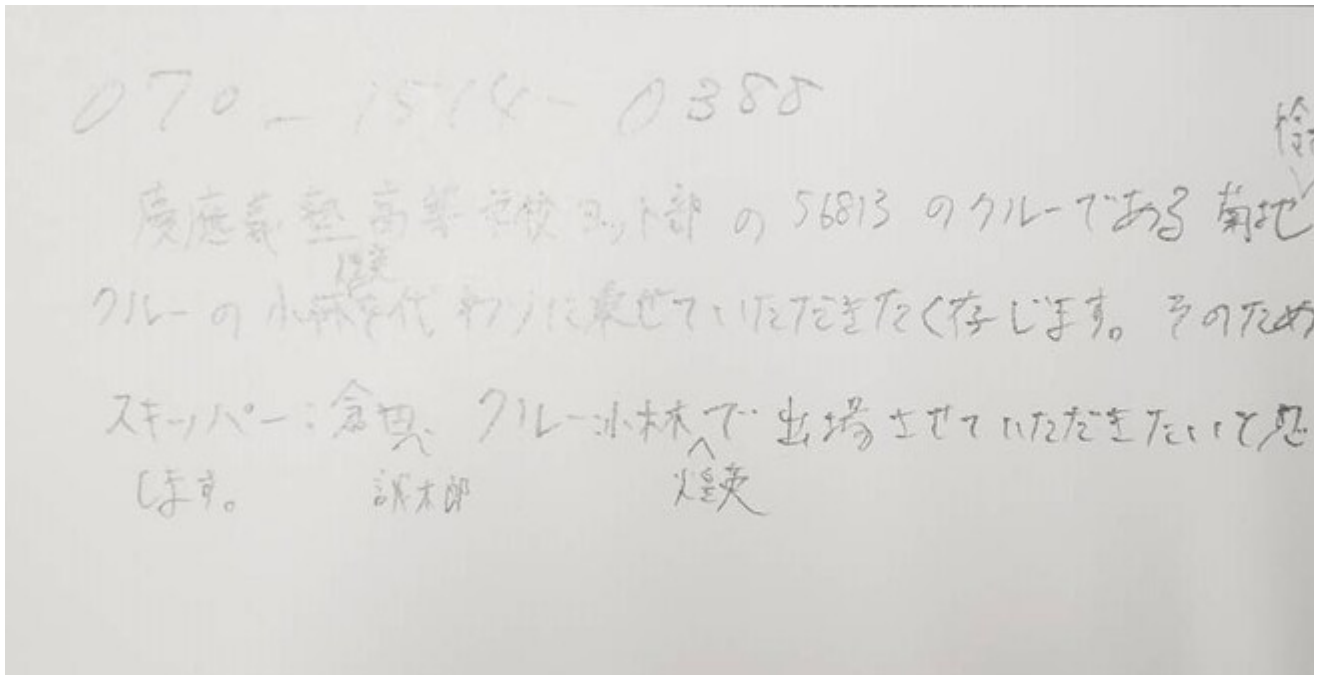 070-1514-0388
慶應義塾高等学校ヨット部の56813のクルーである菊地
クルーの小林を代わりに乗せていただきたく存じます。そのため
煌英
スキッパー:倉田、クルー:小林で出場させていただきたいと思
します。 誠太郎 煌英